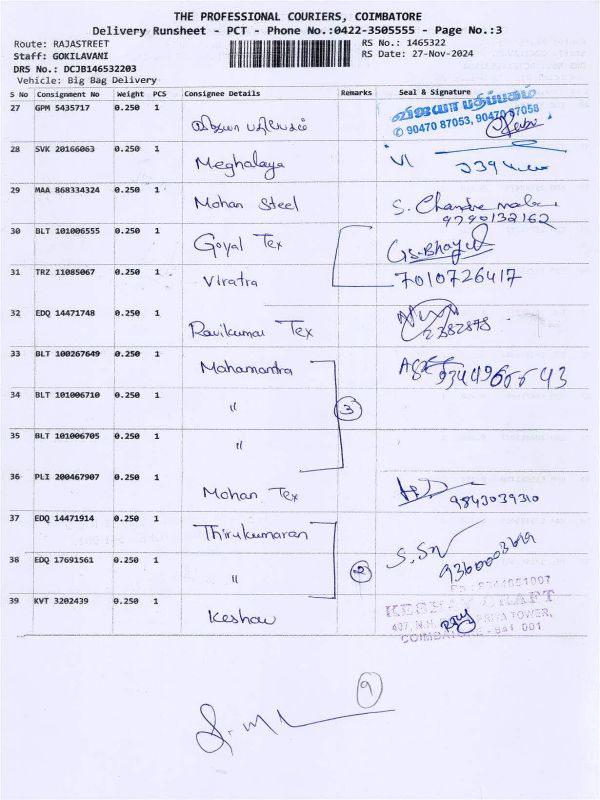 THE PROFESSIONAL COURIERS, COIMBATORE
Delivery Runsheet - PCT - Phone No.:0422-3505555 - Page No.:3
Route: RAJASTREET RS No.: 1465322
Staff: GOKILAVANI RS Date: 27-Nov-2024
DRS No.: DCJB146532203
Vehicle: Big Bag Delivery
S No Consignment No Weight PCS Consignee Details Remarks Seal & Signature
27 GPM 5435717 0.250 1 விஜயா பதிப்பகம்
விஜயா பதிப்பகம்
✆ 90470 87053, 90470 87058
28 SVK 20166063 0.250 1 Meghalaya
29 MAA 868334324 0.250 1 Mohan Steel S. Chandra
9790132162
30 BLT 101006555 0.250 1 Goyal Tex
31 TRZ 11085067 0.250 1 Viratra 7010726417
32 EDQ 14471748 0.250 1 Ravikumar Tex 2382878
33 BLT 100267649 0.250 1 Mahamantra
34 BLT 101006710 0.250 1 " 3
35 BLT 101006705 0.250 1 "
36 PLI 200467907 0.250 1 Mohan Tex 9843039310
37 EDQ 14471914 0.250 1 Thirukumaran
38 EDQ 17691561 0.250 1 " 2 9360003699
39 KVT 3202439 0.250 1 Keshav
KESHAV CRAFT
407, N.H. PRIYA TOWER,
COIMBATORE - 641 001
9